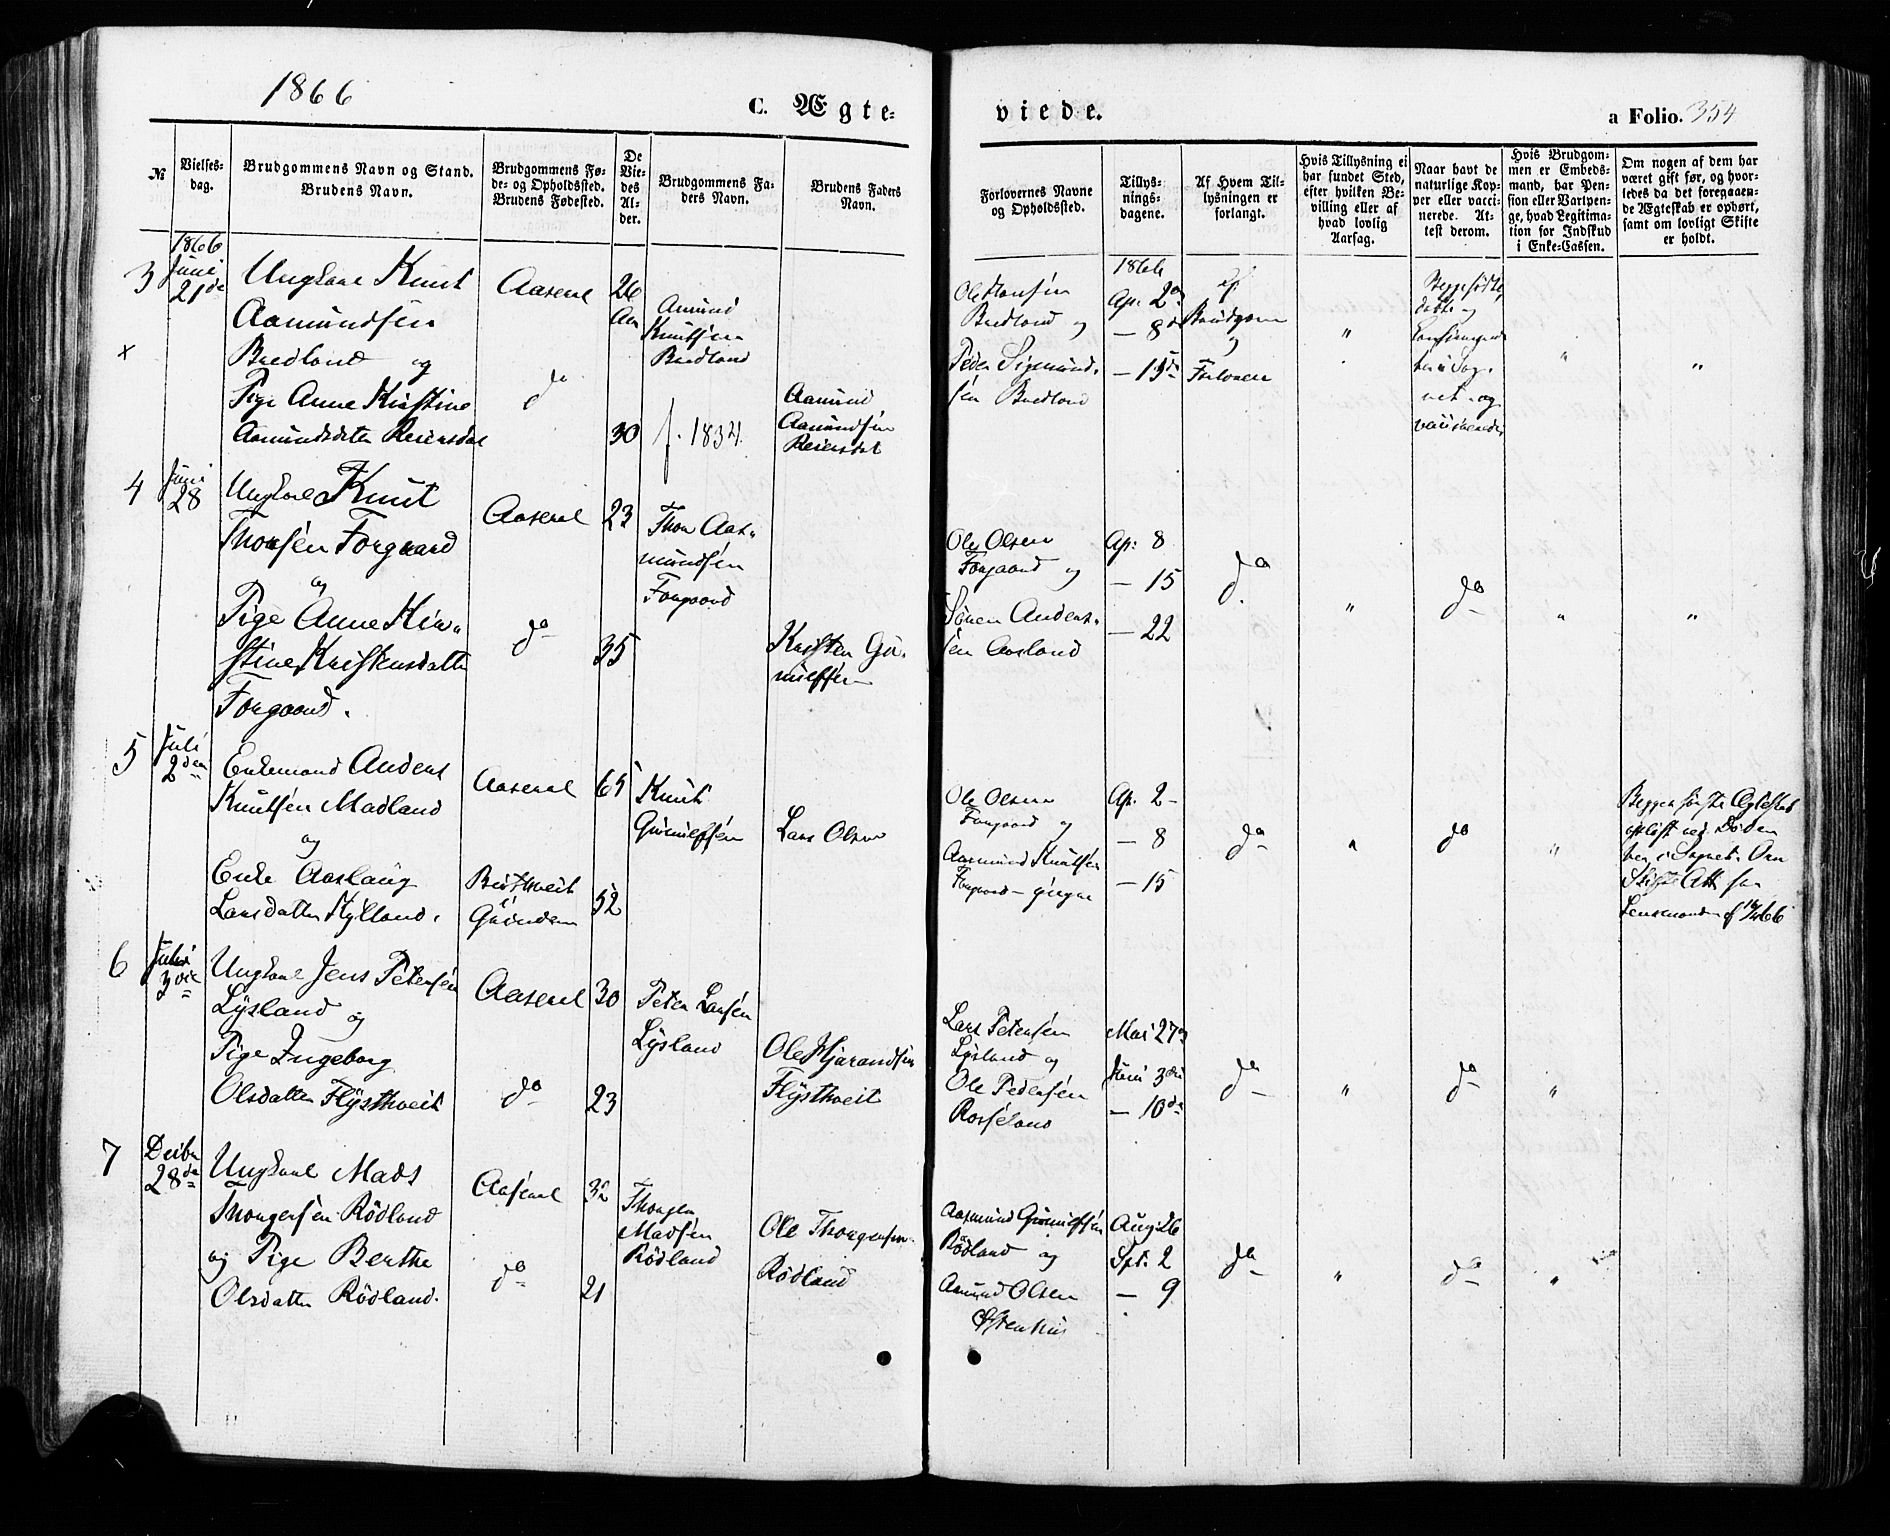 1866
C. Ægte=
viede.
a Folio. 354
№
Vielses-
dag.
Brudgommens Navn og Stand.
Brudens Navn.
Brudgommens Fø-
de- og Opholdssted.
Brudens Fødested.
De
Vie-
des
Al-
der.
Brudgommens Fa-
ders Navn.
Brudens Faders
Navn.
Forlovernes Navne
og Opholdssted.
Tillys-
nings-
dagene.
Af Hvem Til-
lysningen er
forlangt.
Hvis Tillysning ei
har fundet Sted,
efter hvilken Be-
villing eller af
hvad lovlig
Aarsag.
Naar havt de
naturlige Kop-
per eller vacci-
nerede. At-
test derom.
Hvis Brudgom-
men er Embeds-
mand, har Pen-
sion eller Vartpen-
ge, hvad Legitima-
tion for Indskud
i Enke-Cassen.
Om nogen af dem har
været gift før, og hvor-
ledes da det foregaaen-
de Ægteskab er ophørt,
samt om lovligt Skifte
er holdt.
3
1866
Juni
21de
x
Ungkarl Knut
Aamundsen
Bredland og
Pige Anne Kirstine
Aamundsdatter Reiersdal
Aaseral
do
26
Aar
30
Amund
Knutsen
Bredland
f. 1834
Aamund
Aamundsen
Reiersdal
Ole Hansen
Bredland og
Peder Sigmund-
sen Bredland
1866
Ap. 2
— 8de
— 15de
af
Brudgom
og
Forlovere
"
Begge fødte,
døbte og
-
net og
vaccinerede
"
"
4
Juni
28
Ungkarl Knut
Thorsen Forgaard
og
Pige Anne Kir-
stine Kristensdatter
Forgaard.
Aaseral
do
23
35
Thor Aas-
mundsen
Forgaard
Kristen Gu-
nulfsen
Ole Olsen
Forgaard og
Søren Anders-
sen Aasland
Ap: 8
— 15
— 22
do
"
do
"
"
5
Juli
2den
Enkemand Anders
Knutsen Madland
og
Enke Aaslaug
Larsdatter Kylland.
Aaseral
Bustveit
i
Grindem
65
52
Knut
Gunulfsen
Lars Olsen
Ole Olsen
Forgaard og
Aasmund Knutsen
Forgaard
Ap. 2
— 8
— 15
do
"
do
"
Begges første Ægteskab
opløst ved Døden
her i Sognet. Om
Skifte Att fra
Lensmanden af
6
Juli
3die
Ungkarl Jens Petersen
Lysland og
Pige Ingeborg
Olsdatter Flystveit
Aaseral
do
30
23
Peter Larsen
Lysland
Ole Hjarandsen
Flystveit
Lars Petersen
Lysland og
Ole Pedersen
Rosseland
Mai 27
Juni 3die
— 10de
do
"
do
"
7
Decbr
28de
Ungkarl Mads
Thorgersen Rödland
og Pige Berthe
Olsdatter Rödland.
Aaseral
do
32
21
Thorger
Madsen
Rödland
Ole Thorgersen
Rödland
Aasmund Gunulfsen
Rödland og
Aamund Olsen
Østenhus
Aug: 26
Spt. 2
— 9
do
"
do
"